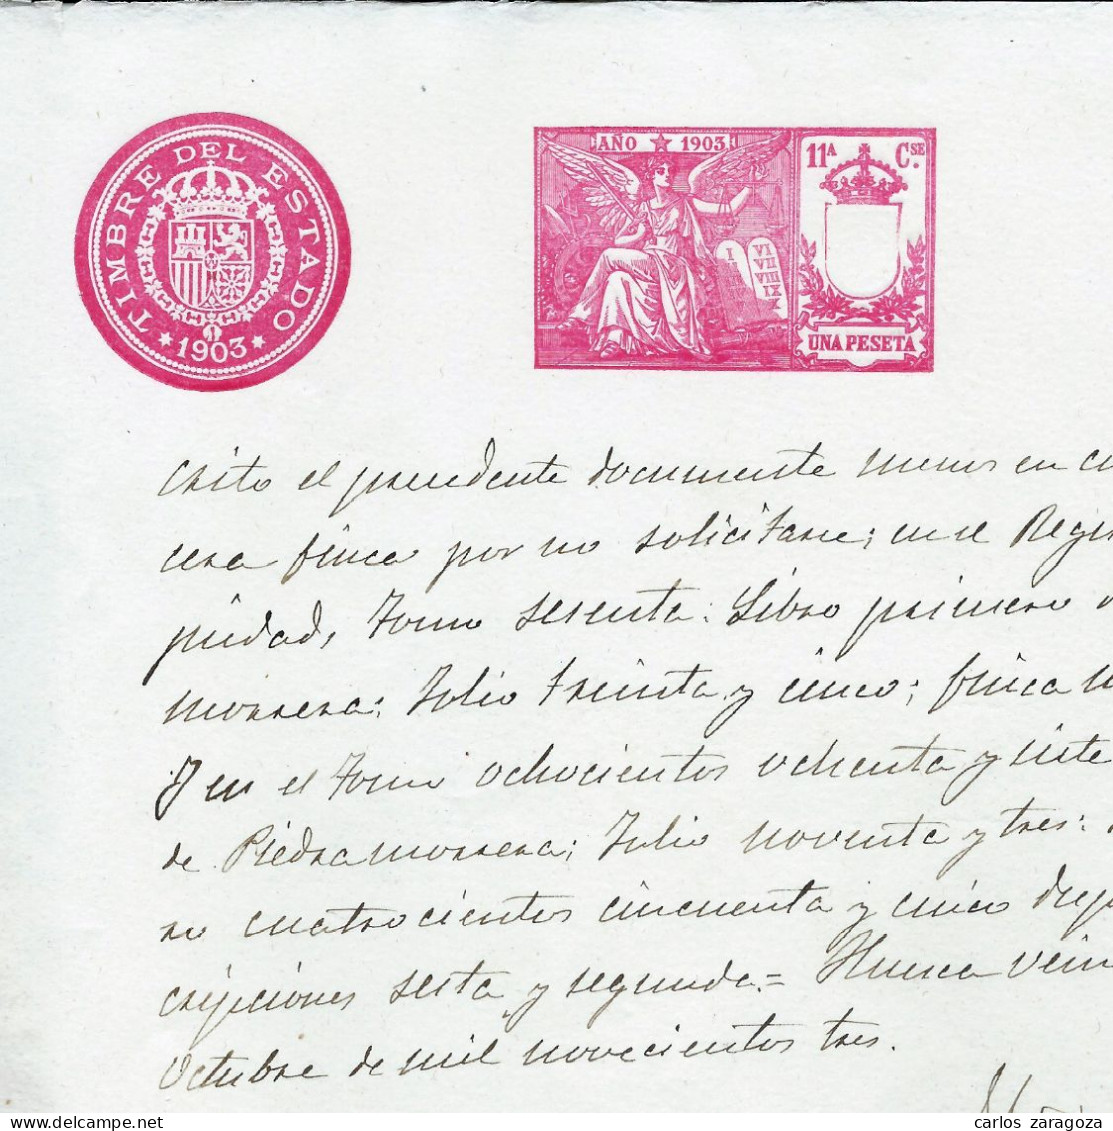 TIMBRE DEL ESTADO
* 1903 *
AÑO ★ 1903
11ª C.SE
I VI
VII
VIII
IX
X
UNA PESETA
crito el precedente documento menos en
cera finca por no solicitarse; en el Regis
piedad, Tomo sesenta: Libro primero
morrera: Folio treinta y cinco; finca
Y en el Tomo ochocientos ochenta y siete
de Piedramorrera; Folio noventa y tres:
ro cuatrocientos cincuenta y cinco
cripciones sesta y segunda = Huesca vein
Octubre de mil novecientos tres.
carlos zaragoza